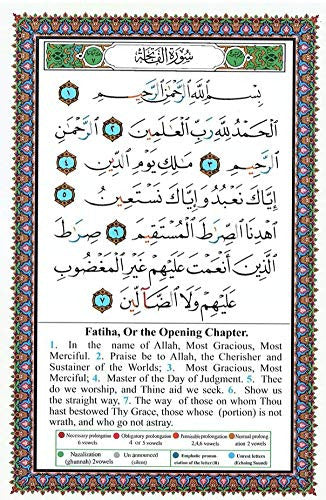 سُورَةُ الْفَاتِحَةِ
بِسْمِ اللَّهِ الرَّحْمَٰنِ الرَّحِيمِ ١
الْحَمْدُ لِلَّهِ رَبِّ الْعَالَمِينَ ٢ الرَّحْمَٰنِ
الرَّحِيمِ ٣ مَالِكِ يَوْمِ الدِّينِ ٤
إِيَّاكَ نَعْبُدُ وَإِيَّاكَ نَسْتَعِينُ ٥
اهْدِنَا الصِّرَاطَ الْمُسْتَقِيمَ ٦ صِرَاطَ
الَّذِينَ أَنْعَمْتَ عَلَيْهِمْ غَيْرِ الْمَغْضُوبِ
عَلَيْهِمْ وَلَا الضَّالِّينَ ٧
Fatiha, Or the Opening Chapter.
1. In the name of Allah, Most Gracious, Most
Merciful. 2. Praise be to Allah, the Cherisher and
Sustainer of the Worlds; 3. Most Gracious, Most
Merciful; 4. Master of the Day of Judgment. 5. Thee
do we worship, and Thine aid we seek. 6. Show us
the straight way, 7. The way of those on whom Thou
hast bestowed Thy Grace, those whose (portion) is not
wrath, and who go not astray.
Necessary prolongation 6 vowels
Obligatory prolongation 4 or 5 vowels
Permissible prolongation 2,4,6 vowels
Normal prolongation 2 vowels
Nazalization (ghunnah) 2vowels
Un announced (silent)
Emphatic pronunciation of the letter (R)
Unrest letters (Echoing Sound)